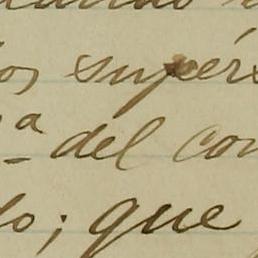 os supérs
ª del con
do; que